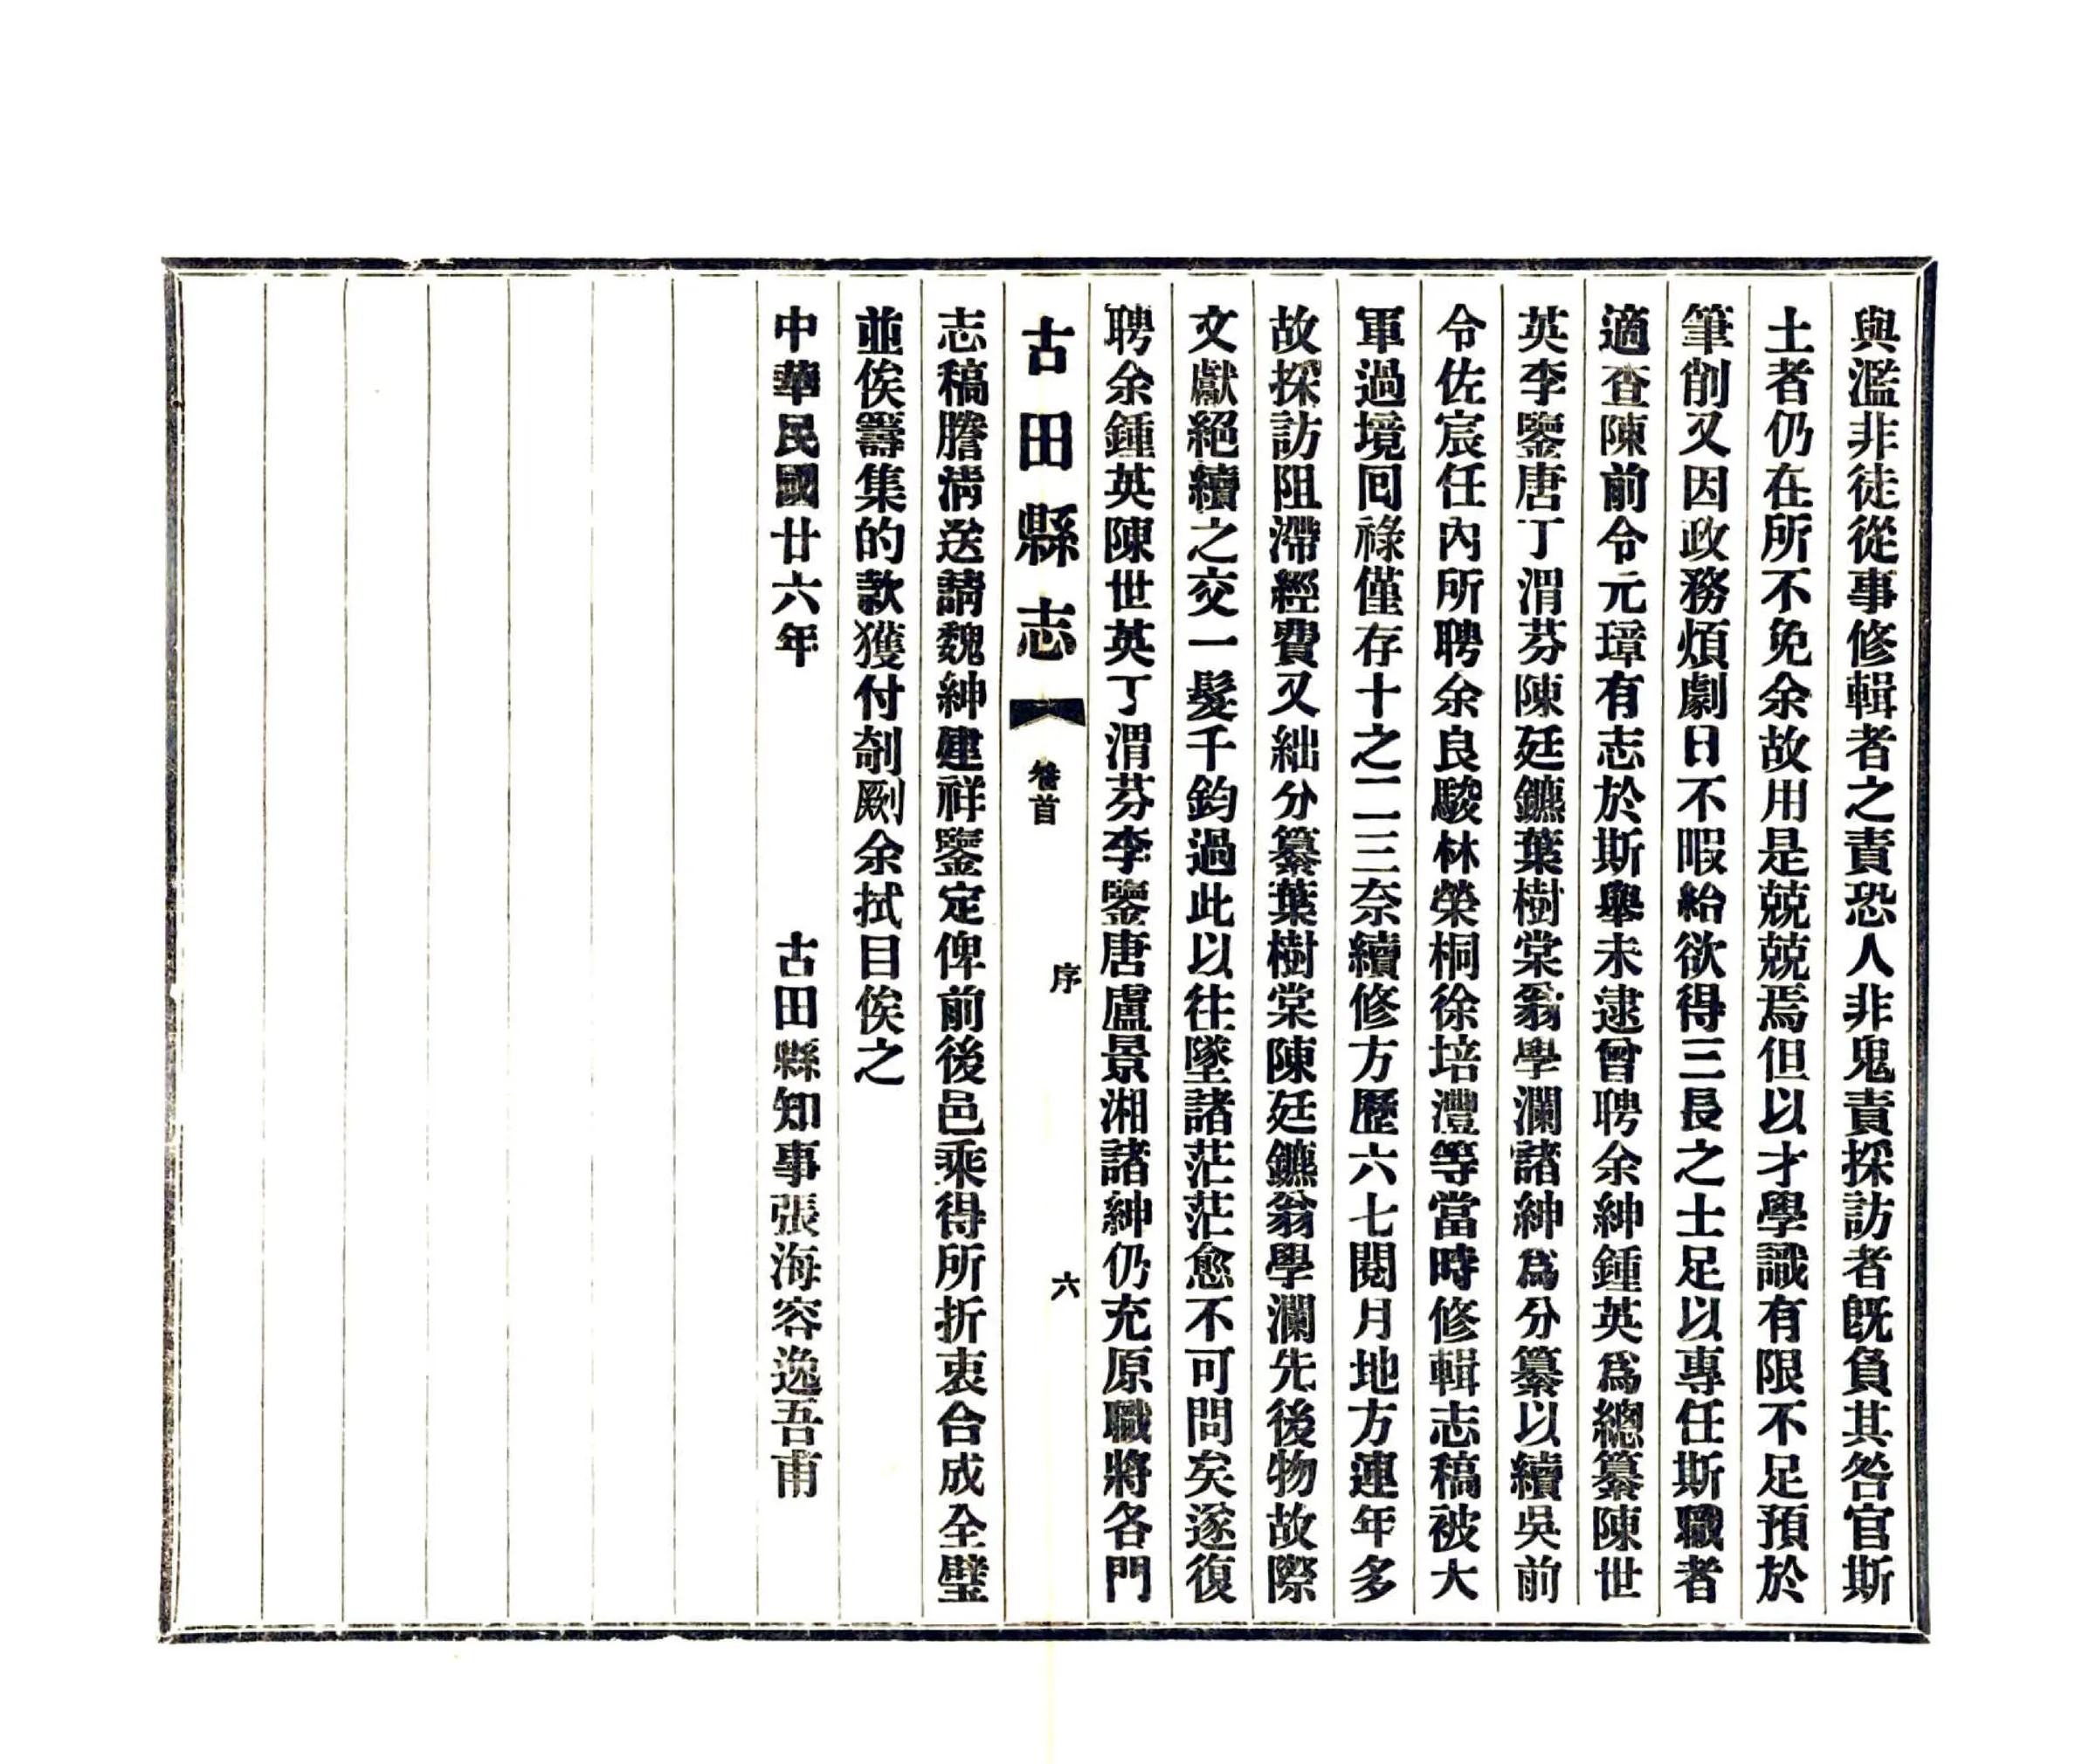 與濫非徒從事修輯者之責恐人非鬼責採訪者既負其咎官斯
土者仍在所不免余故用是兢兢焉但以才學識有限不足預於
筆削又因政務煩劇日不暇給欲得三長之士足以專任斯職者
適查陳前令元璋有志於斯舉未逮曾聘余紳鍾英爲總纂陳世
英李鑒唐丁渭芬陳廷鑣葉樹棠翁學瀾諸紳爲分纂以續吳前
令佐宸任內所聘余良駿林榮桐徐培灃等當時修輯志稿被大
軍過境回祿僅存十之二三奈續修方歷六七閱月地方連年多
故採訪阻滯經費又絀分纂葉樹棠陳廷鑣翁學瀾先後物故際
文獻絕續之交一髮千鈞過此以往墜諸茫茫愈不可問矣遂復
聘余鍾英陳世英丁渭芬李鑒唐盧景湘諸紳仍充原職將各門
古田縣志 卷首 序 六
志稿謄清送請魏紳建祥鑒定俾前後邑乘得所折衷合成全璧
並俟籌集的款獲付剞劂余拭目俟之
中華民國廿六年 古田縣知事張海容逸吾甫